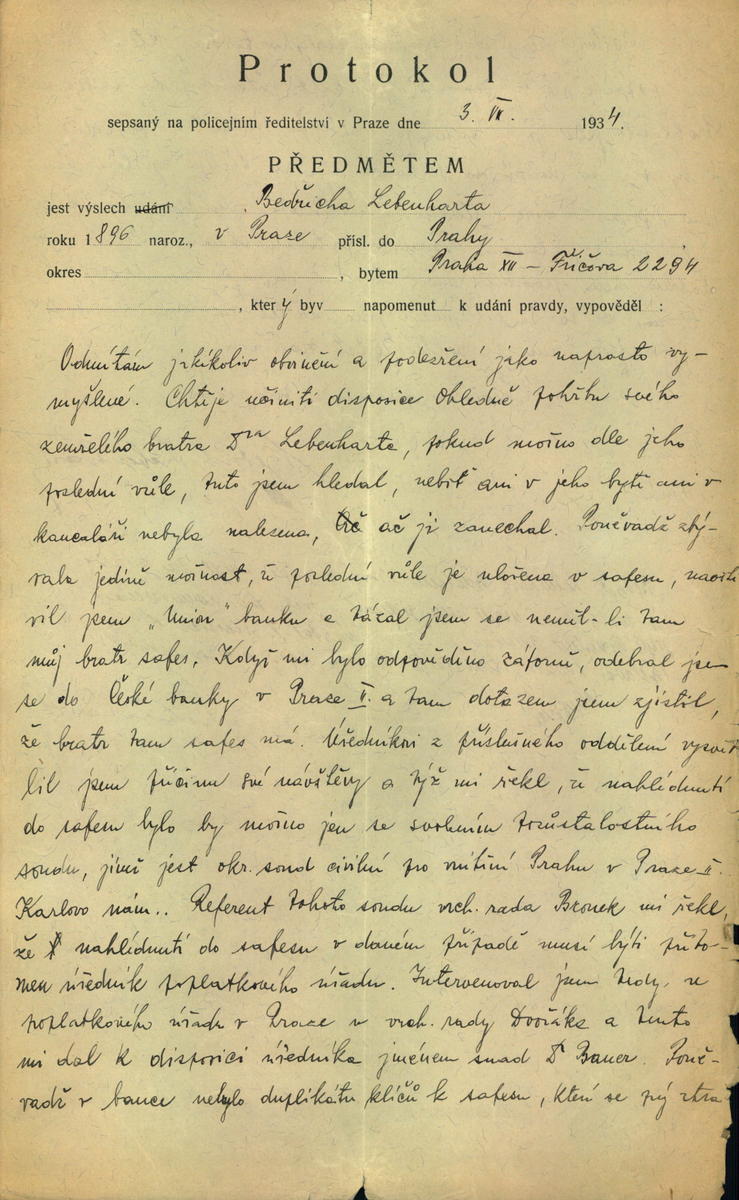 Protokol
sepsaný na policejním ředitelství v Praze dne 3. IX. 1934.
PŘEDMĚTEM
jest výslech udání Bedřicha Lebenharta
roku 1896 naroz., v Praze přísl. do Prahy
okres , bytem Praha XII – Fričova 2294
, který byv napomenut k udání pravdy, vypověděl :
Odmítám jakékoliv obvinění a podezření jako naprosto vy-
myšlené. Chtěje učiniti disposice ohledně pohřbu svého
zemřelého bratra Dra Lebenharta, pokud možno dle jeho
poslední vůle, tuto jsem hledal, neboť ani v jeho bytě ani v
kanceláři nebyla nalezena, ač ji zanechal. Poněvadž zbý-
vala jediná možnost, že poslední vůle je uložena v safesu, navští
vil jsem „Union" banku a tázal jsem se neměl-li tam
můj bratr safes. Když mi bylo odpověděno záporně, odebral jsem
se do České banky v Praze II. a tam dotazem jsem zjistil,
že bratr tam safes má. Úředníkovi z příslušného oddělení vysvět
lil jsem příčinu své návštěvy a týž mi řekl, že nahlédnutí
do safesu bylo by možno jen se svolením pozůstalostního
soudu, jímž jest okr. soud civilní pro vnitřní Prahu v Praze II.
Karlovo nám.. Referent tohoto soudu vrch. rada Bronek mi řekl,
že k nahlédnutí do safesu v daném případě musí býti příto-
men úředník poplatkového úřadu. Intervenoval jsem tedy u
poplatkového úřadu v Praze u vrch. rady Dvořáka a tento
mi dal k disposici úředníka jménem snad Dr Bauer. Poně-
vadž v bance nebylo duplikátu klíčů k safesu, které se prý ztra